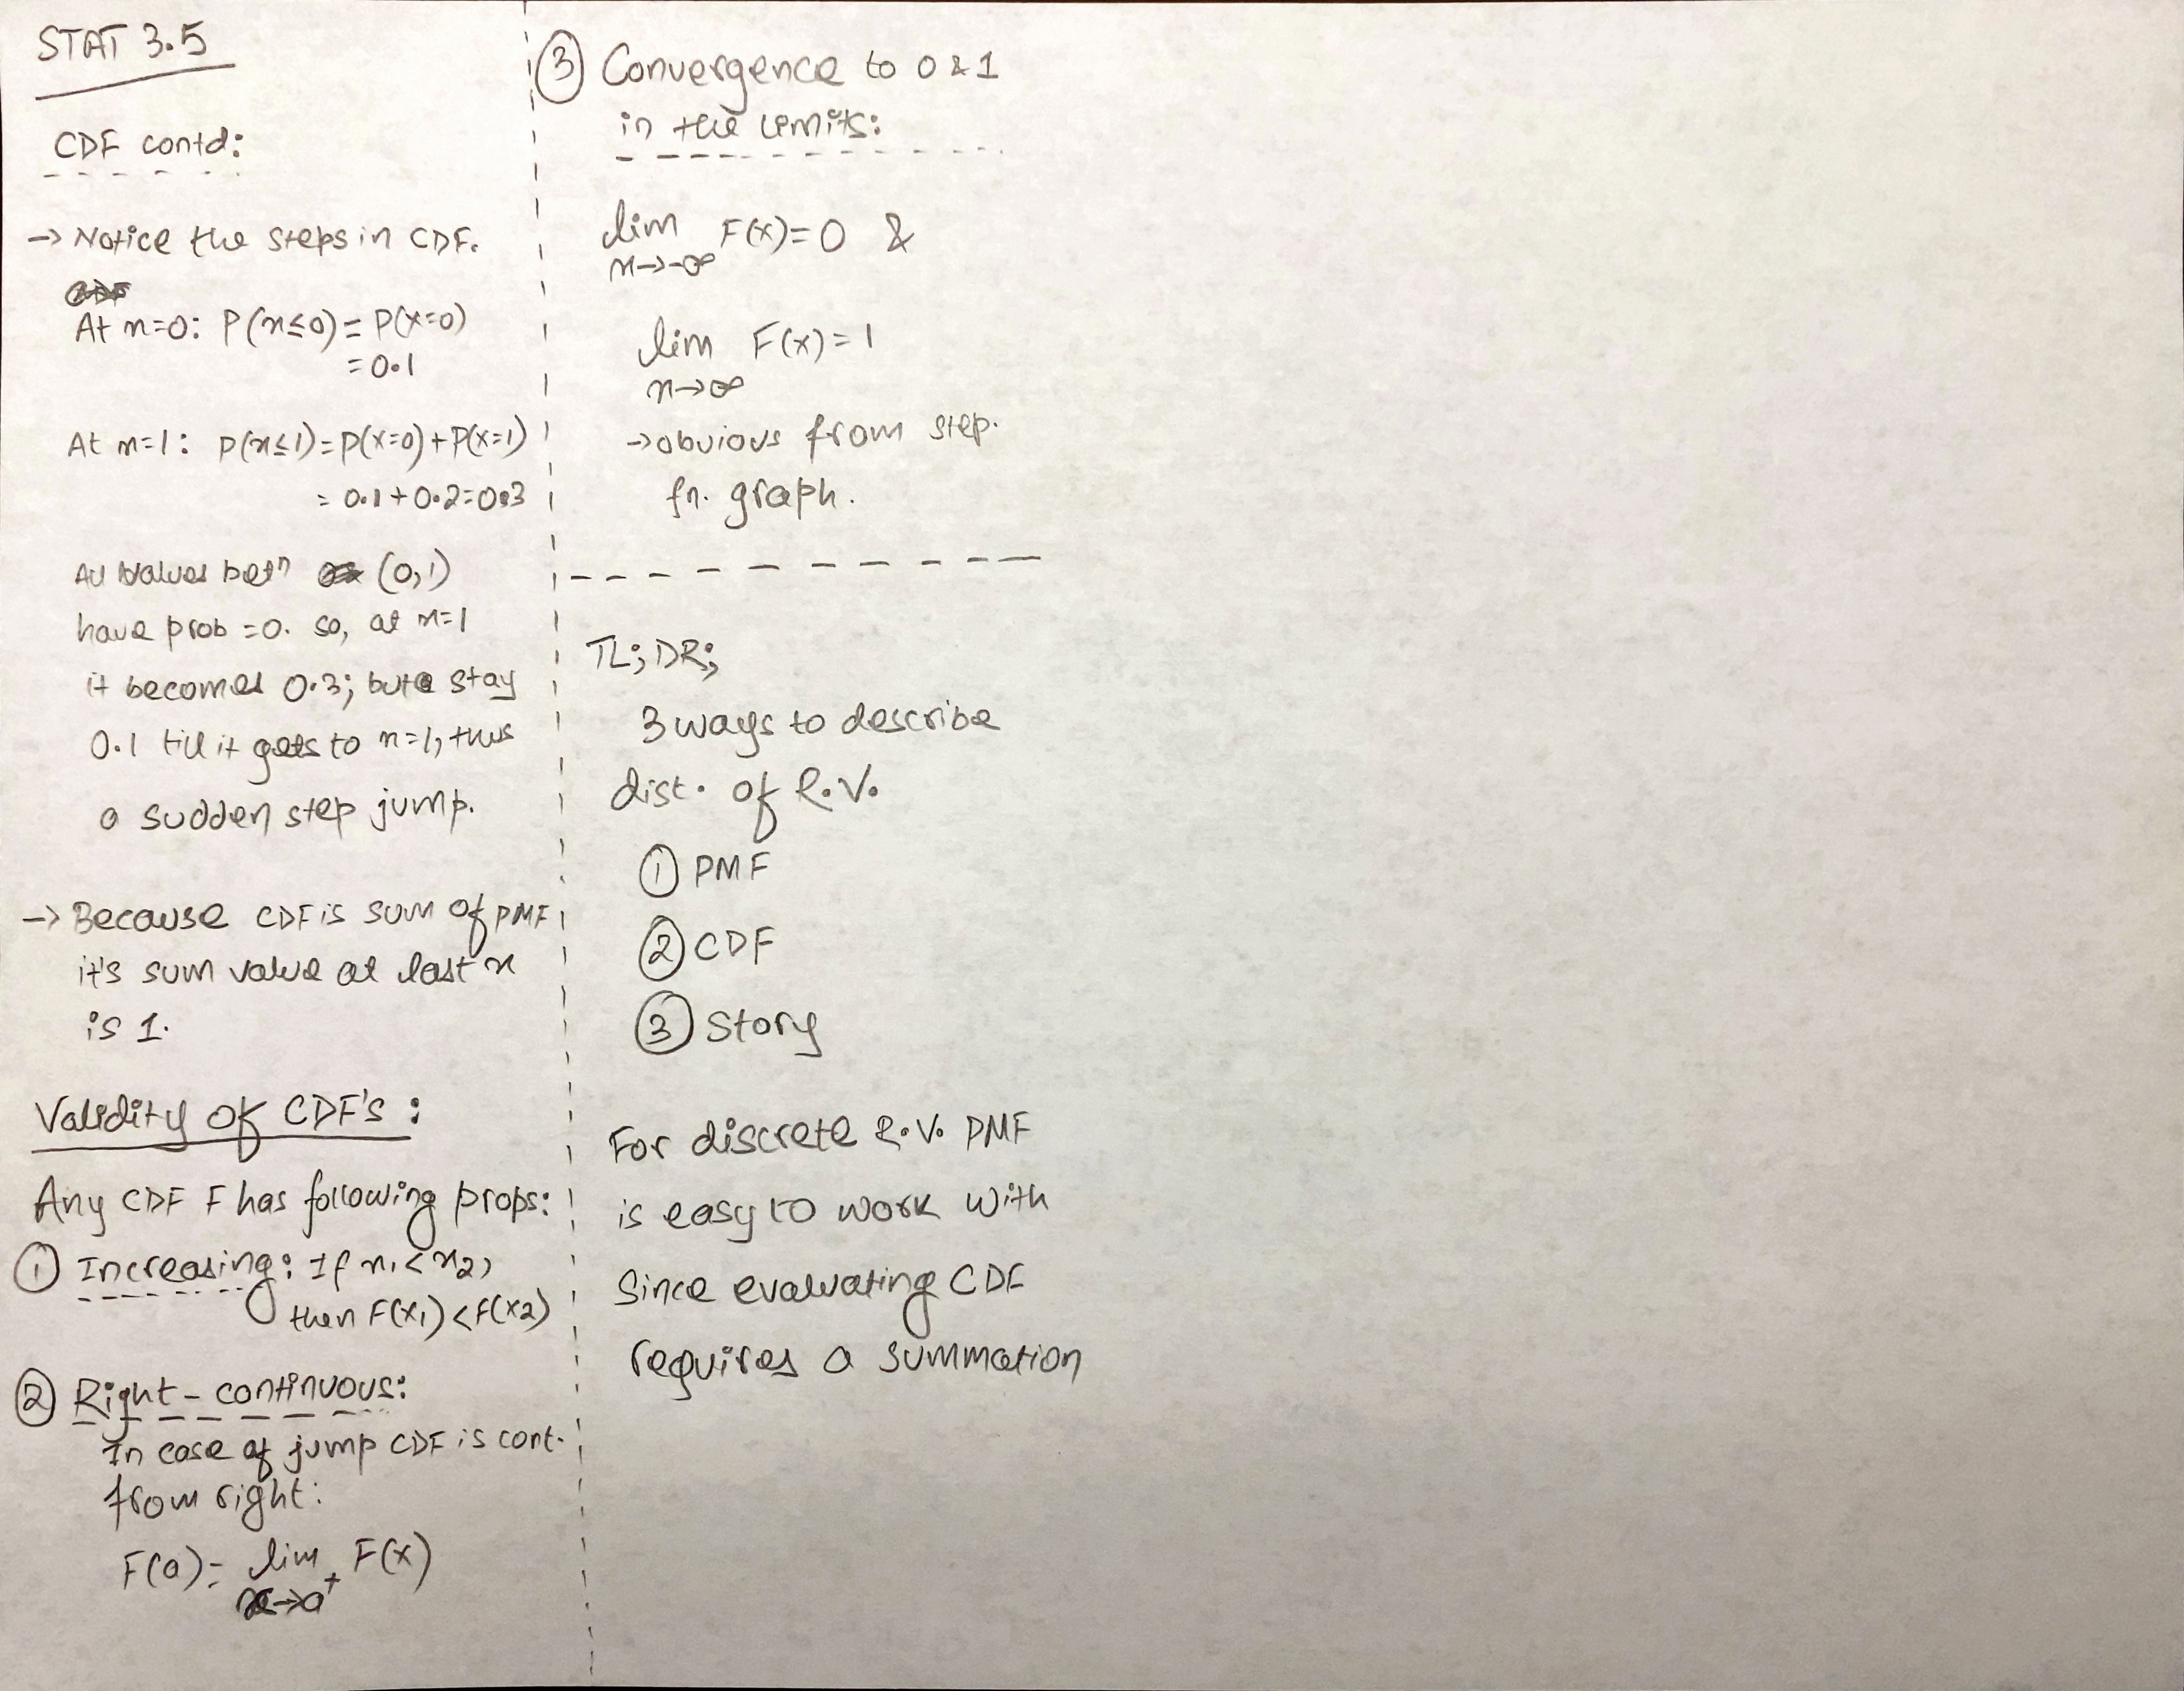 STAT 3.5
CDF contd:
→ Notice the steps in CDF.
At x=0: P(x≤0) = P(X=0)
= 0.1
At x=1: P(x≤1) = P(X=0) + P(X=1)
= 0.1 + 0.2 = 0.3
All values betn (0,1)
have prob = 0. so, at x=1
it becomes 0.3; but stay
0.1 till it gets to x=1, thus
a sudden step jump.
→ Because CDF is sum of PMF
it's sum value at last x
is 1.
Validity of CDF's:
Any CDF F has following props:
① Increasing: If x1 < x2,
then F(x1) < F(x2)
② Right-continuous:
In case of jump CDF is cont.
from right:
F(a) = lim F(x)
x→a+
③ Convergence to 0 & 1
in the limits:
lim F(x) = 0 &
x→-∞
lim F(x) = 1
x→∞
→ obvious from step.
fn. graph.
TL;DR;
3 ways to describe
dist. of R.V.
① PMF
② CDF
③ Story
For discrete R.V. PMF
is easy to work with
Since evaluating CDF
requires a summation